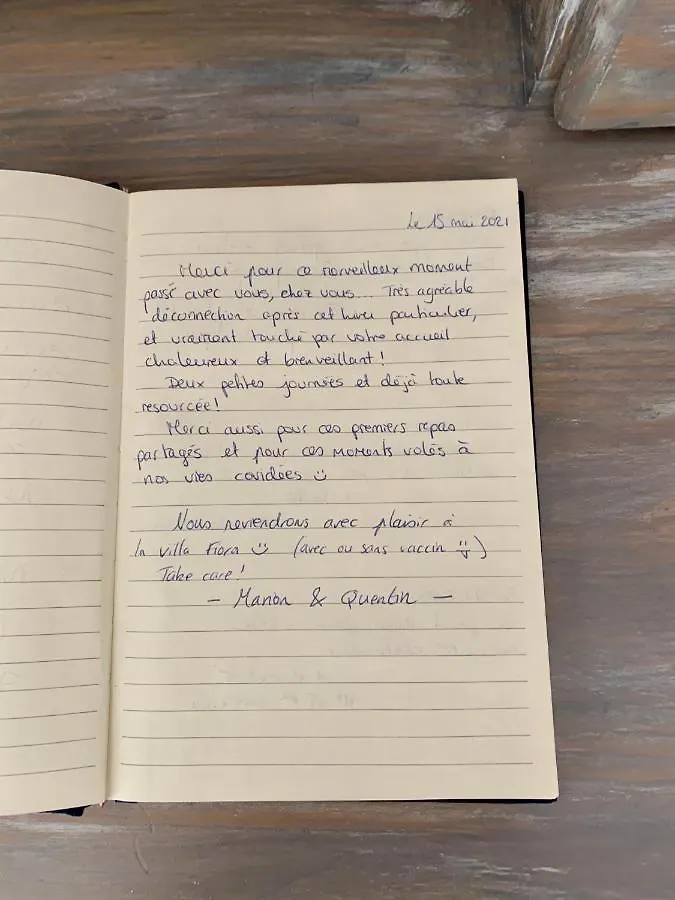 Le 15 mai 2021
Merci pour ce merveilleux moment
passé avec vous, chez vous... Très agréable
déconnection après cet hiver particulier,
et vraiment touché par votre accueil
chaleureux et bienveillant !
Deux petites journées et déjà toute
resourcée !
Merci aussi pour ces premiers repas
partagés et pour ces moments volés à
nos vies covidées ☺
Nous reviendrons avec plaisir à
la villa Fiora ☺ (avec ou sans vaccin ☺)
Take care !
- Manon & Quentin -